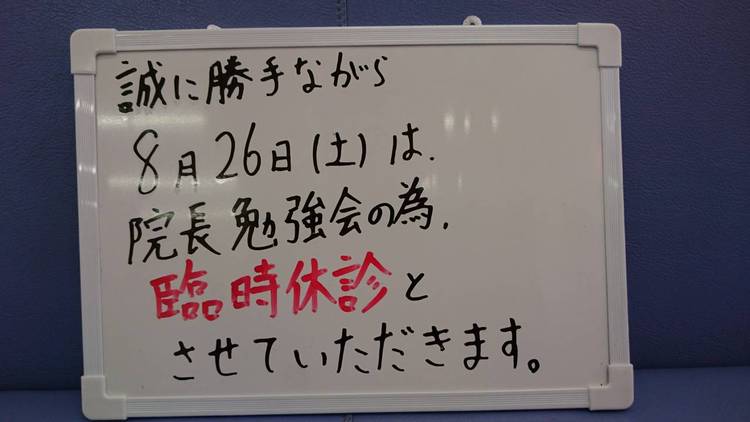 誠に勝手ながら
8月26日(土)は、
院長勉強会の為、
臨時休診と
させていただきます。